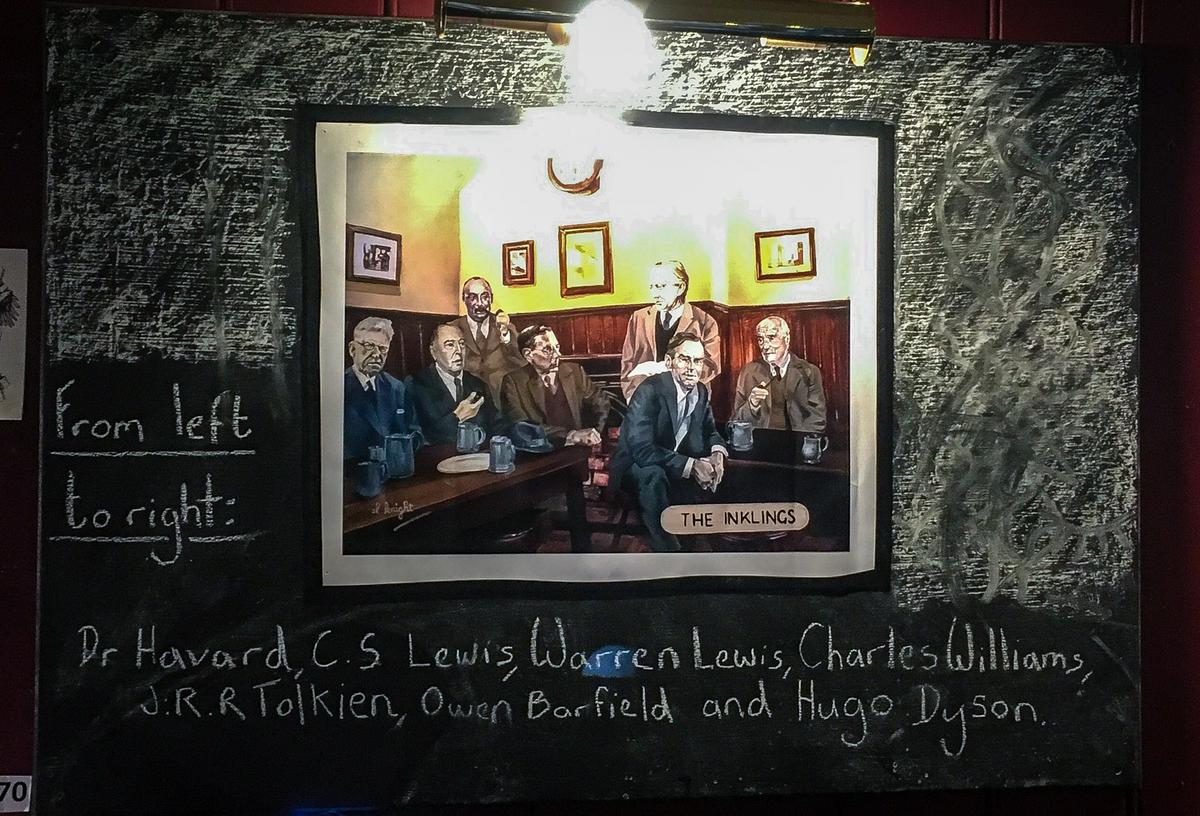 From left
to right:
J Knight
THE INKLINGS
Dr Havard, C.S Lewis, Warren Lewis, Charles Williams,
J.R.R Tolkien, Owen Barfield and Hugo Dyson.
70